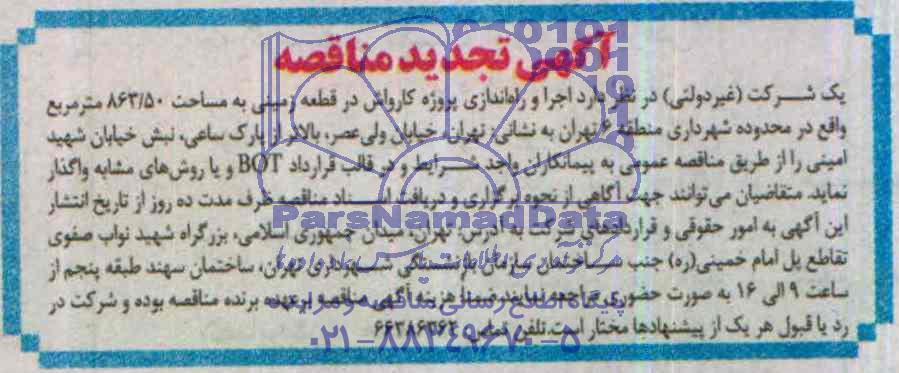 آگهی تجدید مناقصه
یک شرکت (غیردولتی) در نظر دارد اجرا و راه‌اندازی پروژه کارواش در قطعه زمینی به مساحت ۸۶۳/۵۰ مترمربع
واقع در محدوده شهرداری منطقه ۶ تهران به نشانی: تهران، خیابان ولی‌عصر، بالاتر از پارک ساعی، نبش خیابان شهید
امینی را از طریق مناقصه عمومی به پیمانکاران واجد شرایط و در قالب قرارداد BOT و یا روش‌های مشابه واگذار
نماید. متقاضیان می‌توانند جهت آگاهی از نحوه برگزاری و دریافت اسناد مناقصه ظرف مدت ده روز از تاریخ انتشار
ParsNamadData
این آگهی به امور حقوقی و قراردادهای شرکت به آدرس: تهران، میدان جمهوری اسلامی، بزرگراه شهید نواب صفوی
تقاطع پل امام خمینی(ره) جنب ساختمان سازمان بازنشستگی شهرداری تهران، ساختمان سهند طبقه پنجم از
ساعت ۹ الی ۱۶ به صورت حضوری مراجعه نمایند. ضمنا هزینه آگهی مناقصه برعهده برنده مناقصه بوده و شرکت در
رد یا قبول هر یک از پیشنهادها مختار است. تلفن تماس:
۰۲۱-۸۸۳۴۹۶۷۰-۵